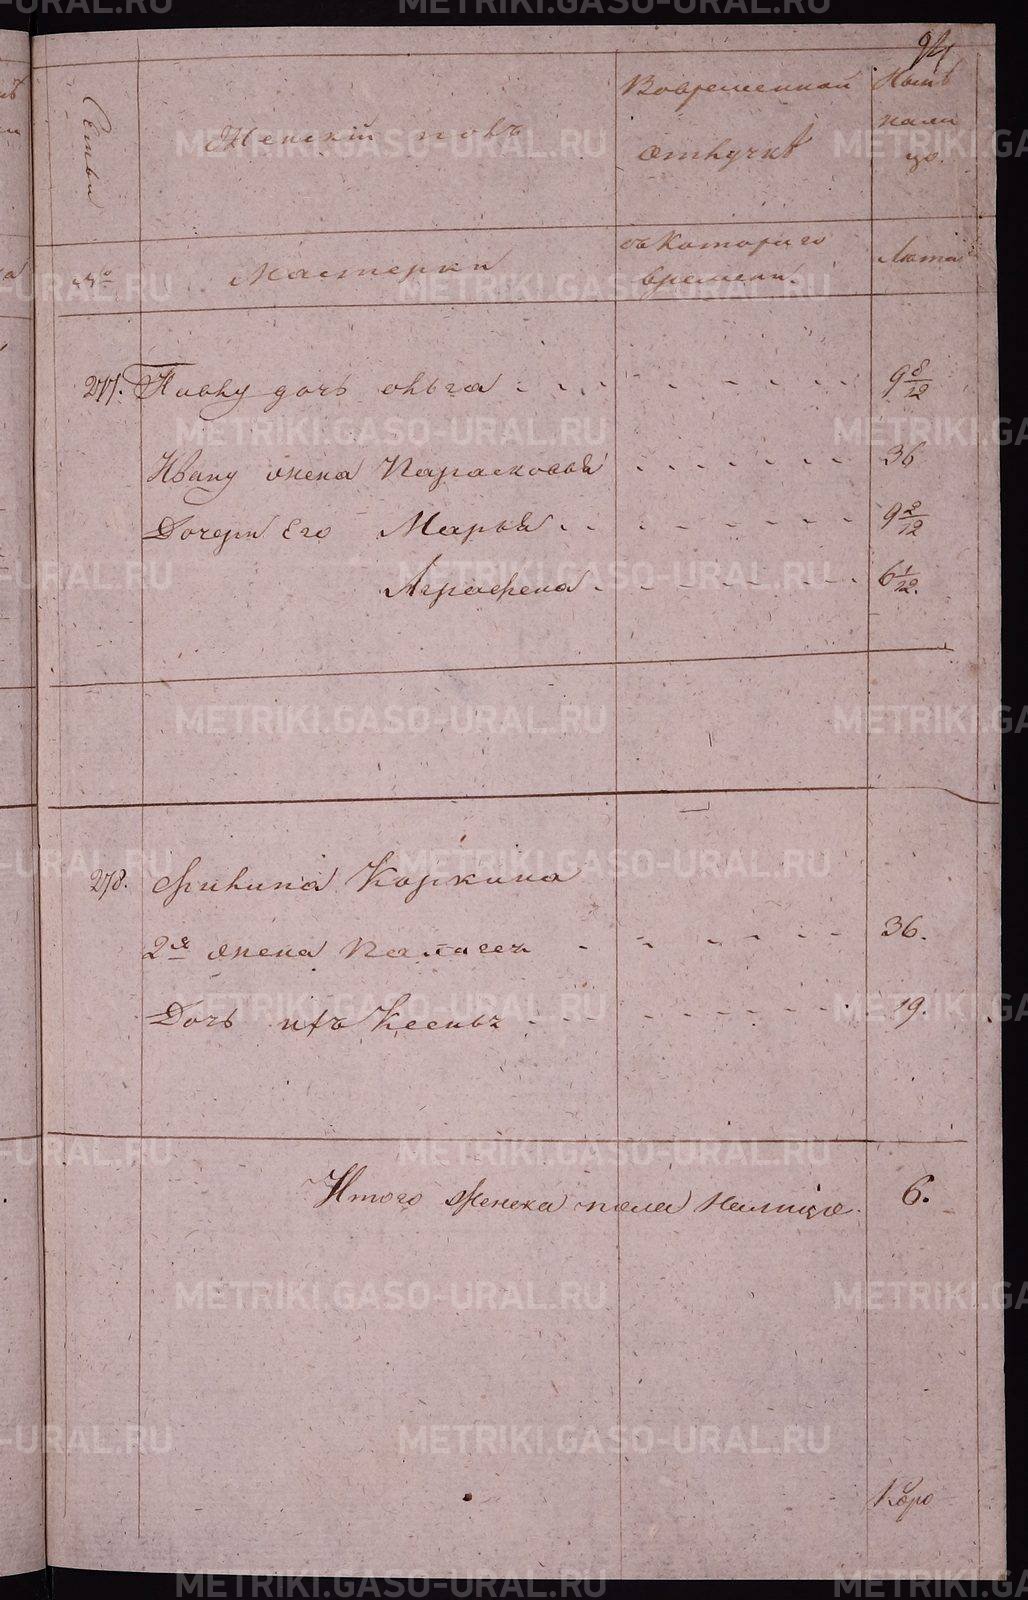 Семьи
Женскiй полъ
Вовременной
отлучкѣ
Нынѣ
нали
цо.
№
Мастерки
съ Котораго
времени.
Лѣта
277. Павлу дочь Ольга 9 8/12
Ивану жена Парасковья 36
Дочери Его Марья 9 2/12
Аграфена 6 1/12.
278. Филипа Коркина
2я жена Палагея 36.
Дочь ихъ Ксенья 19.
Итого Женска пола Налицо. 6.
Коро
METRIKI.GASO-URAL.RU